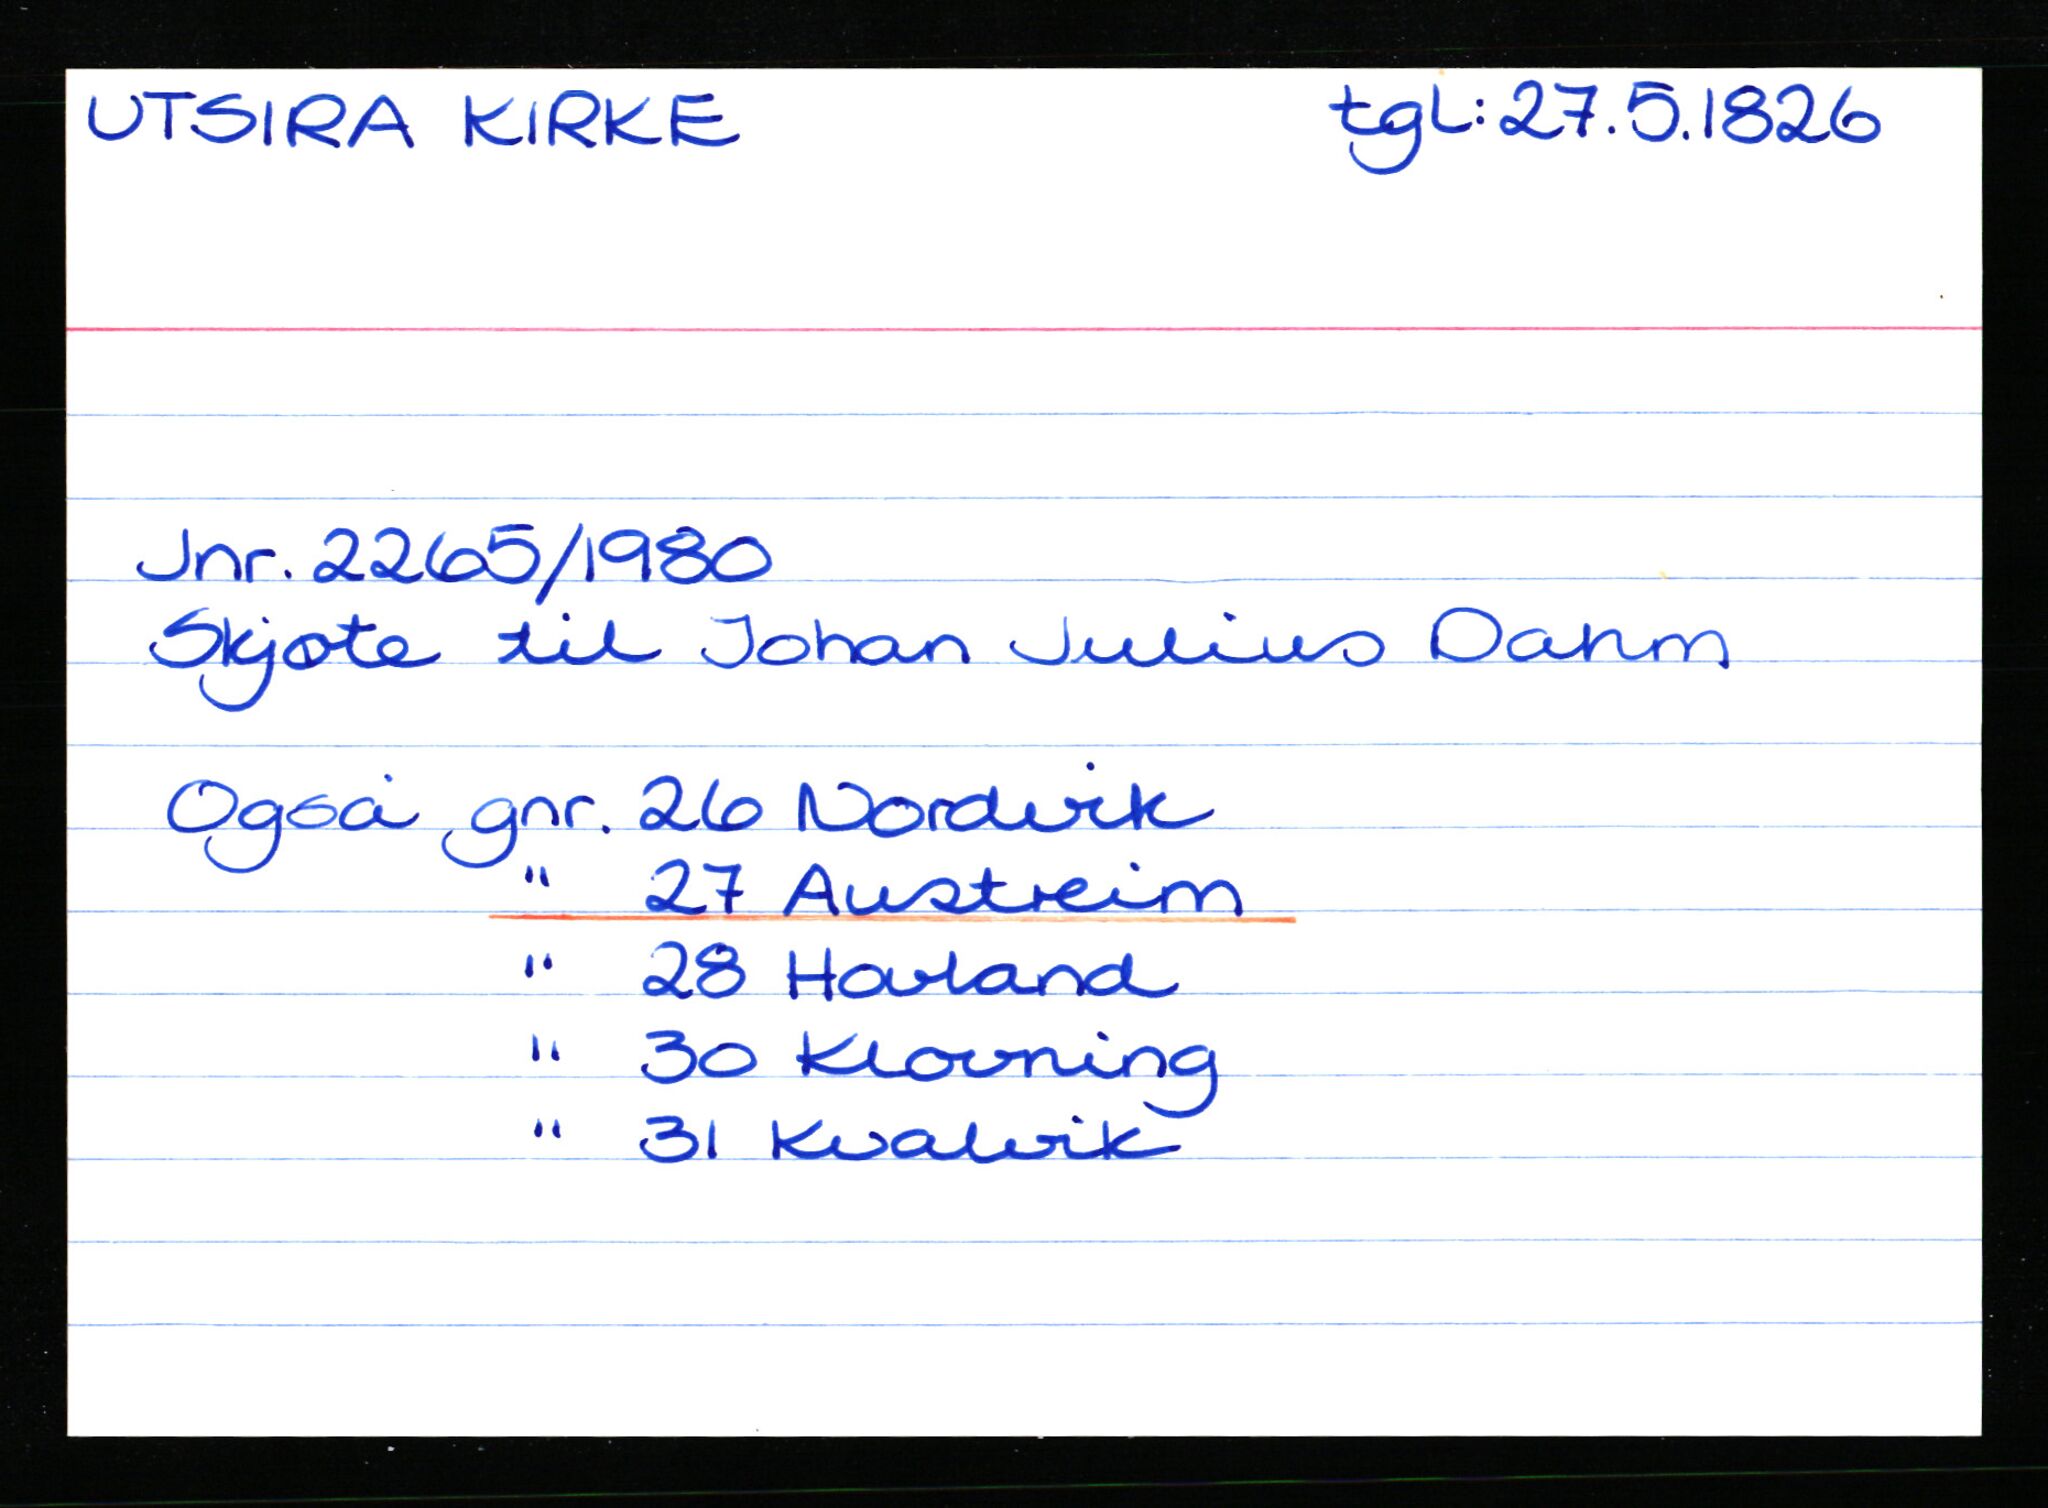 UTSIRA KIRKE tgl: 27.5.1826
Jnr. 2265/1980
Skjøte til Johan Julius Dahm
Også gnr. 26 Nordvik
" 27 Austreim
" 28 Hovland
" 30 Klovning
" 31 Kvalvik